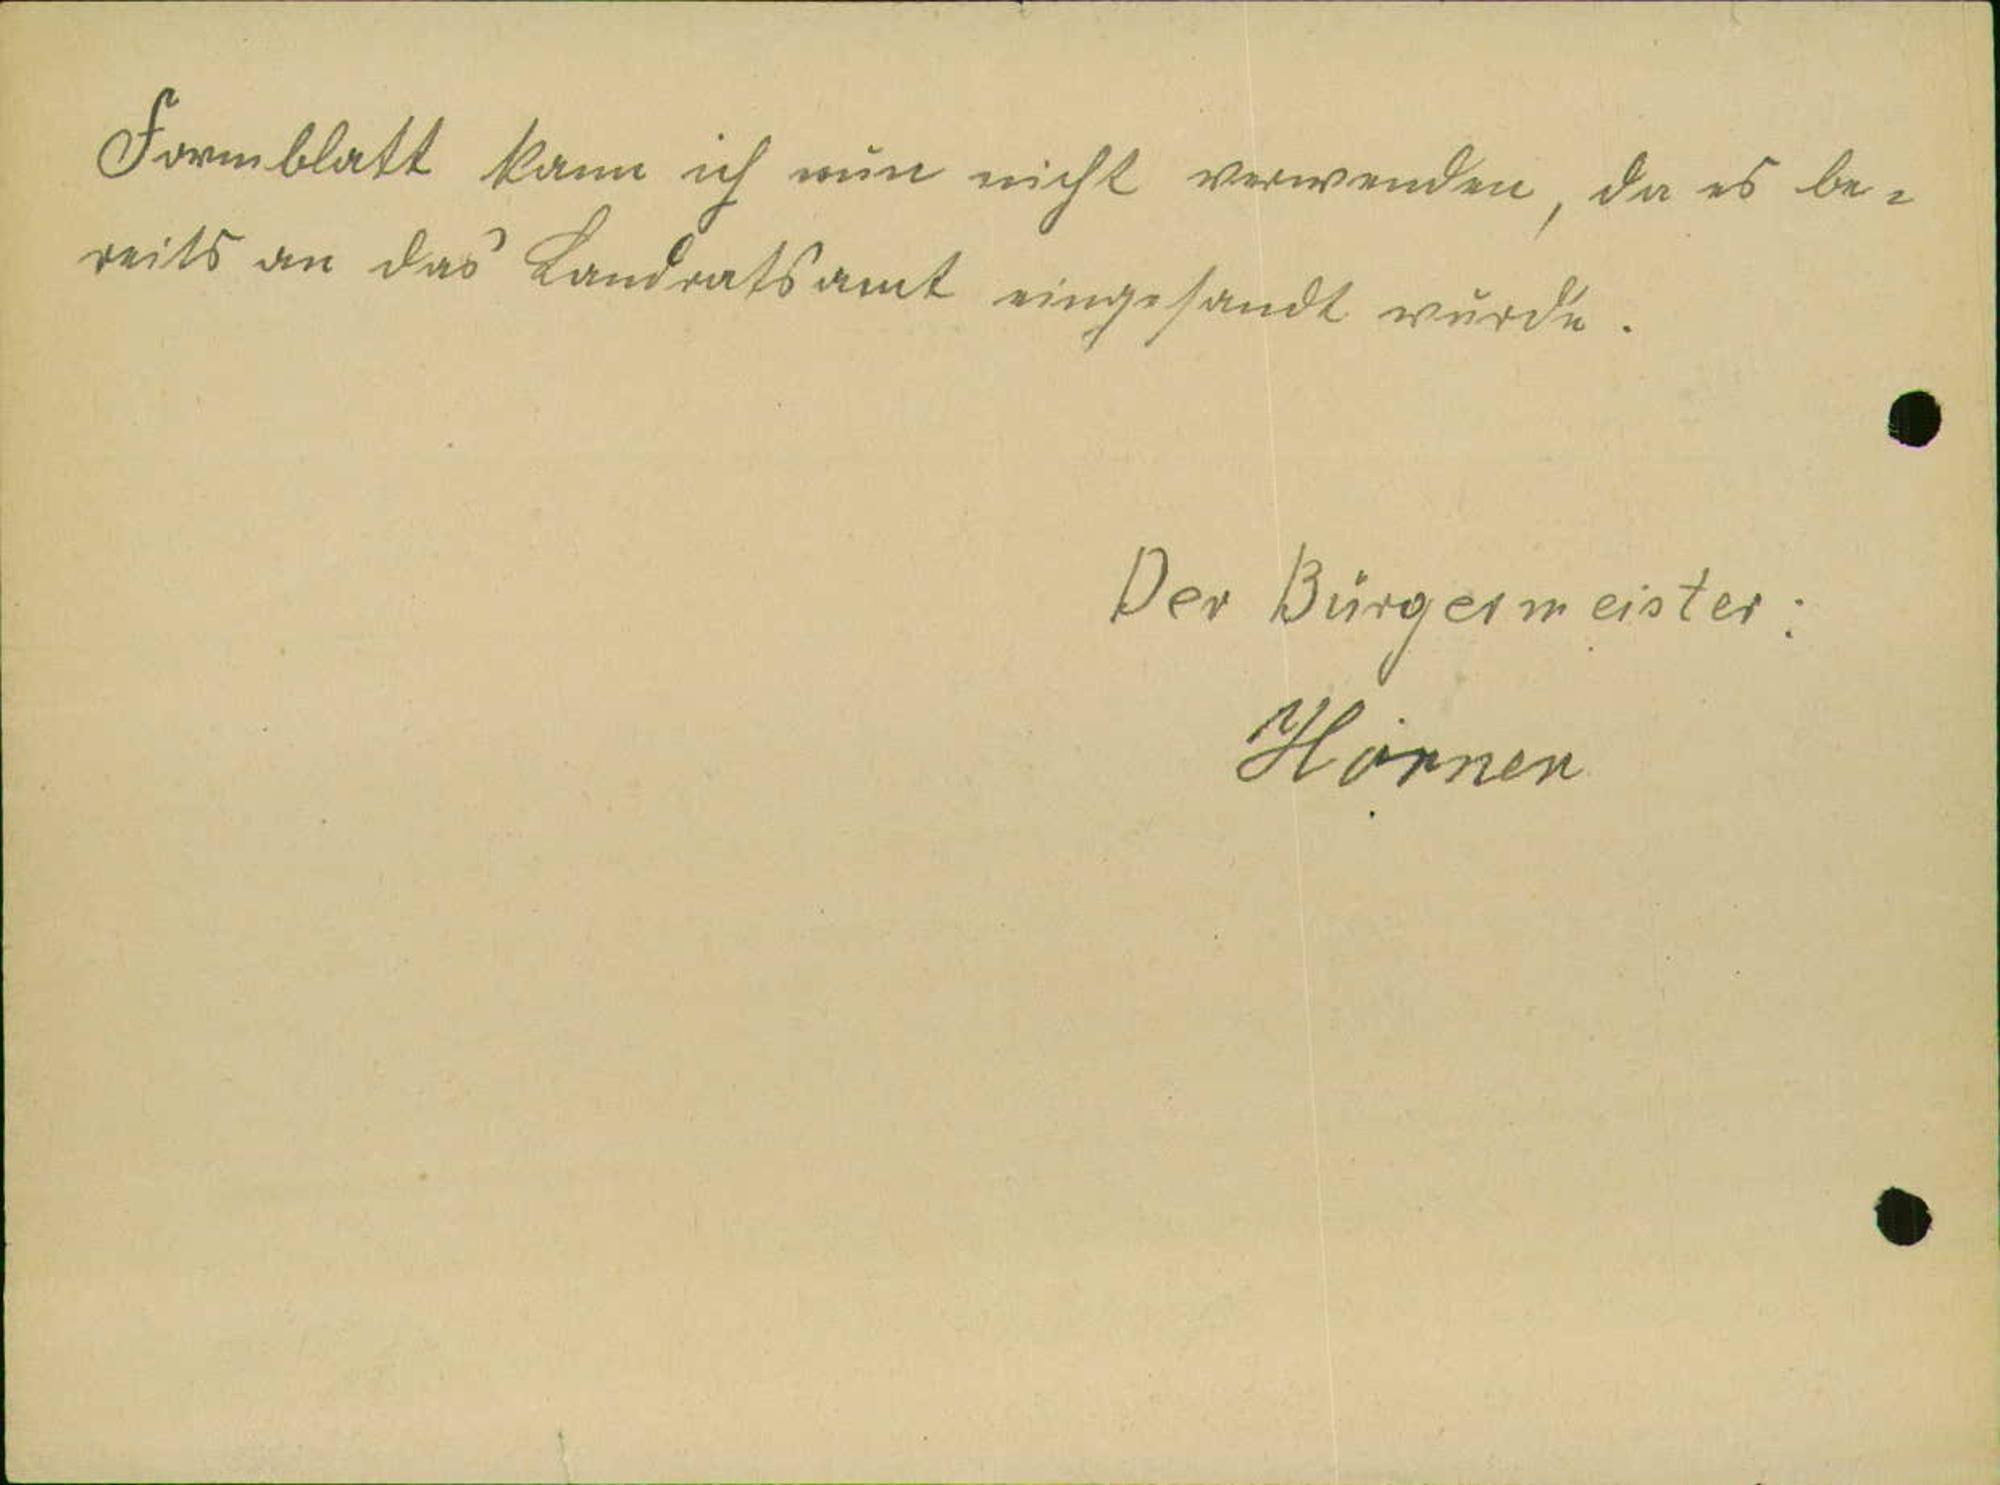 Formblatt kann ich nun nicht verwenden, da es be-
reits an das Landratsamt eingesandt wurde.
Der Bürgermeister:
Hörner